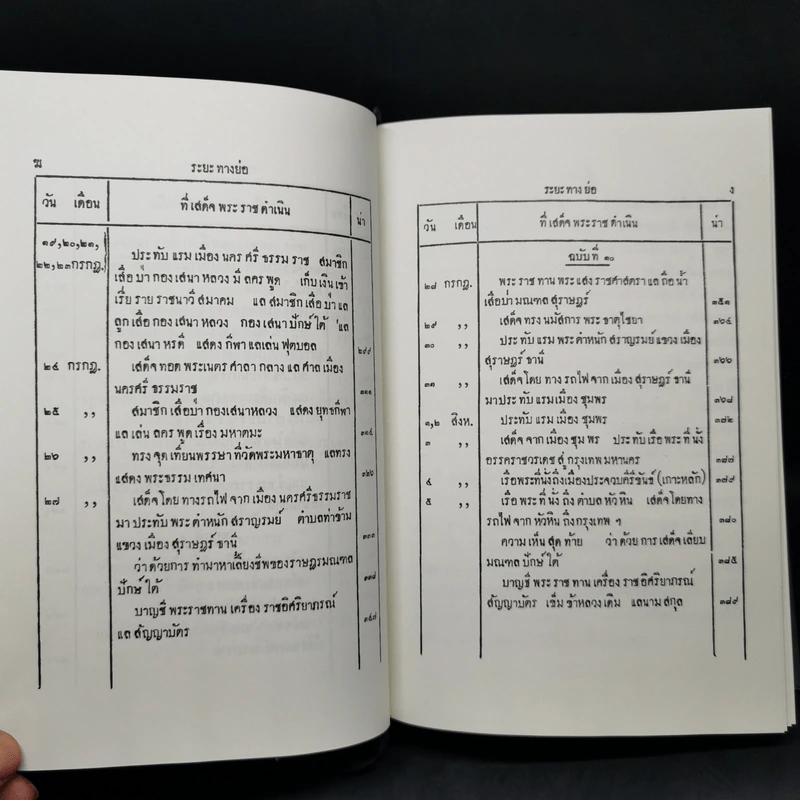 ฆ
ระยะทางย่อ
วัน เดือน ที่เสด็จพระราชดำเนิน น่า
๑๙,๒๐,๒๑,
๒๒,๒๓กรกฎ. ประทับแรมเมืองนครศรีธรรมราช สมาชิก
เสือป่ากองเสนาหลวงมีลครพูด เก็บเงินเข้า
เรี่ยรายราชนาวีสมาคม แลสมาชิกเสือป่าแล
ลูกเสือกองเสนาหลวง กองเสนาปักษ์ใต้ แล
กองเสนาหรดี แสดงกีฬาแลเล่นฟุตบอล ๒๙๙
๒๔ กรกฎ. เสด็จทอดพระเนตรศาลากลางแลศาลเมือง
นครศรีธรรมราช ๓๑๑
๒๕ ,, สมาชิกเสือป่ากองเสนาหลวง แสดงยุทธกีฬา
แลเล่นลครพูดเรื่องมหาตมะ ๓๑๔
๒๖ ,, ทรงจุดเทียนพรรษาที่วัดพระมหาธาตุ แลทรง
แสดงพระธรรมเทศนา ๓๒๖
๒๗ ,, เสด็จโดยทางรถไฟจากเมืองนครศรีธรรมราช
มาประทับพระตำหนักสราญรมย์ ตำบลท่าข้าม
แขวงเมืองสุราษฎร์ธานี ๓๓๓
ว่าด้วยการทำมาหาเลี้ยงชีพของราษฎรมณฑล
ปักษ์ใต้ ๓๓๘
บาญชีพระราชทานเครื่องราชอิศริยาภรณ์
แลสัญญาบัตร ๓๔๗
ระยะทางย่อ
ง
วัน เดือน ที่เสด็จพระราชดำเนิน น่า
ฉบับที่ ๑๐
๒๘ กรกฎ. พระราชทานพระแสงราชศัสตราแลถือน้ำ
เสือป่ามณฑลสุราษฎร์ ๓๕๑
๒๙ ,, เสด็จทรงนมัสการพระธาตุไชยา ๓๖๔
๓๐ ,, ประทับแรมพระตำหนักสราญรมย์แขวงเมือง
สุราษฎร์ธานี ๓๖๖
๓๑ ,, เสด็จโดยทางรถไฟจากเมืองสุราษฎร์ธานี
มาประทับแรมเมืองชุมพร ๓๖๘
๑,๒ สิงห. ประทับแรมเมืองชุมพร ๓๗๒
๓ ,, เสด็จจากเมืองชุมพร ประทับเรือพระที่นั่ง
อรรคราชวรเดชสู่กรุงเทพมหานคร ๓๗๗
๔ ,, เรือพระที่นั่งถึงเมืองประจวบคิรีขันธ์ (เกาะหลัก) ๓๗๙
๕ ,, เรือพระที่นั่งถึงตำบลหัวหิน เสด็จโดยทาง
รถไฟจากหัวหินถึงกรุงเทพ ฯ ๓๘๐
ความเห็นสุดท้าย ว่าด้วยการเสด็จเลียบ
มณฑลปักษ์ใต้ ๓๘๕
บาญชีพระราชทานเครื่องราชอิศริยาภรณ์
สัญญาบัตร เข็มข้าหลวงเดิม แลนามสกุล ๓๘๙